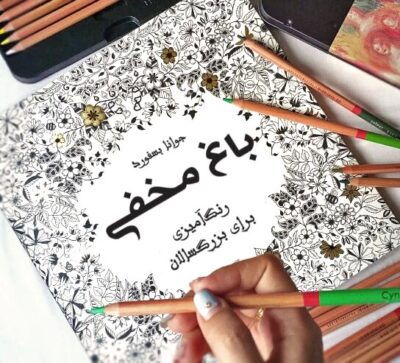 جوانا بسفورد
باغ مخفی
رنگ‌آمیزی
برای بزرگسالان